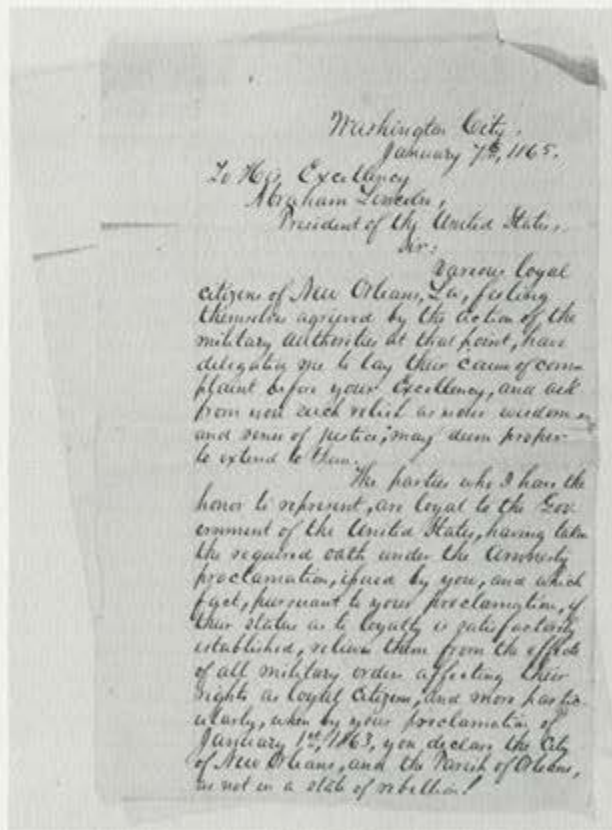 Washington City,
January 7th, 1865.
To His, Excellency
Abraham Lincoln,
President of the United States,
Sir:
Various loyal
citizens of New Orleans, La, feeling
themselves agrieved by the action of the
military authorities at that point, have
delegated me to lay their cause of com-
plaint before your Excellency, and ask
from you such relief as your wisdom
and sense of justice, may deem proper
to extend to them.
The parties who I have the
honor to represent, are loyal to the Gov
ernment of the United States, having taken
the required oath under the Amnesty
proclamation, issued by you, and which
fact, pursuant to your proclamation, if
their status as to loyalty is satisfactorily
established, relieves them from the effects
of all military orders affecting their
rights as loyal citizens, and more partic-
ularly, when by your proclamation of
January 1st, 1863, you declare the City
of New Orleans, and the Parish of Orleans,
as not in a state of rebellion!